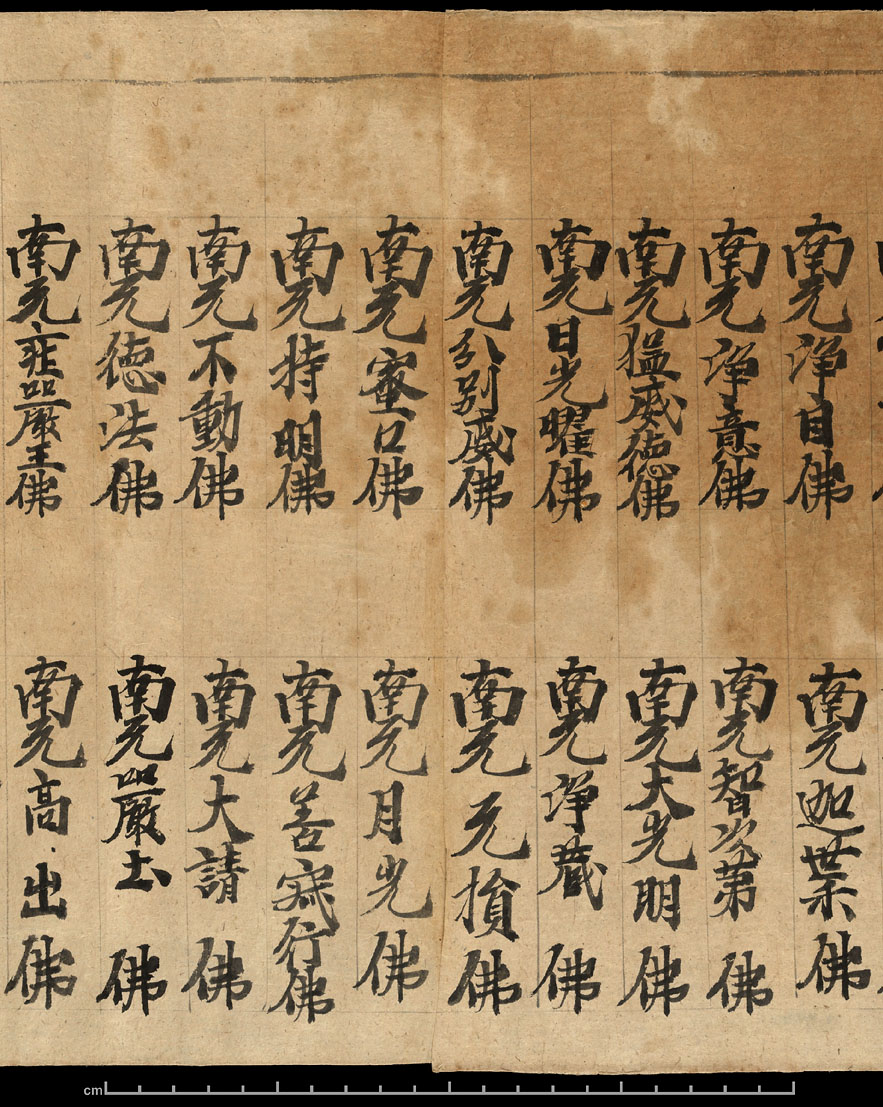 南无淨目佛
南无迦葉佛
南无淨意佛
南无智次第佛
南无猛威德佛
南无大光明佛
南无日光曜佛
南无淨藏佛
南无分別威佛
南无无損佛
南无蜜口佛
南无月光佛
南无持明佛
南无善寂行佛
南无不動佛
南无大請佛
南无德法佛
南无嚴土佛
南无莊嚴王佛
南无高出佛
cm